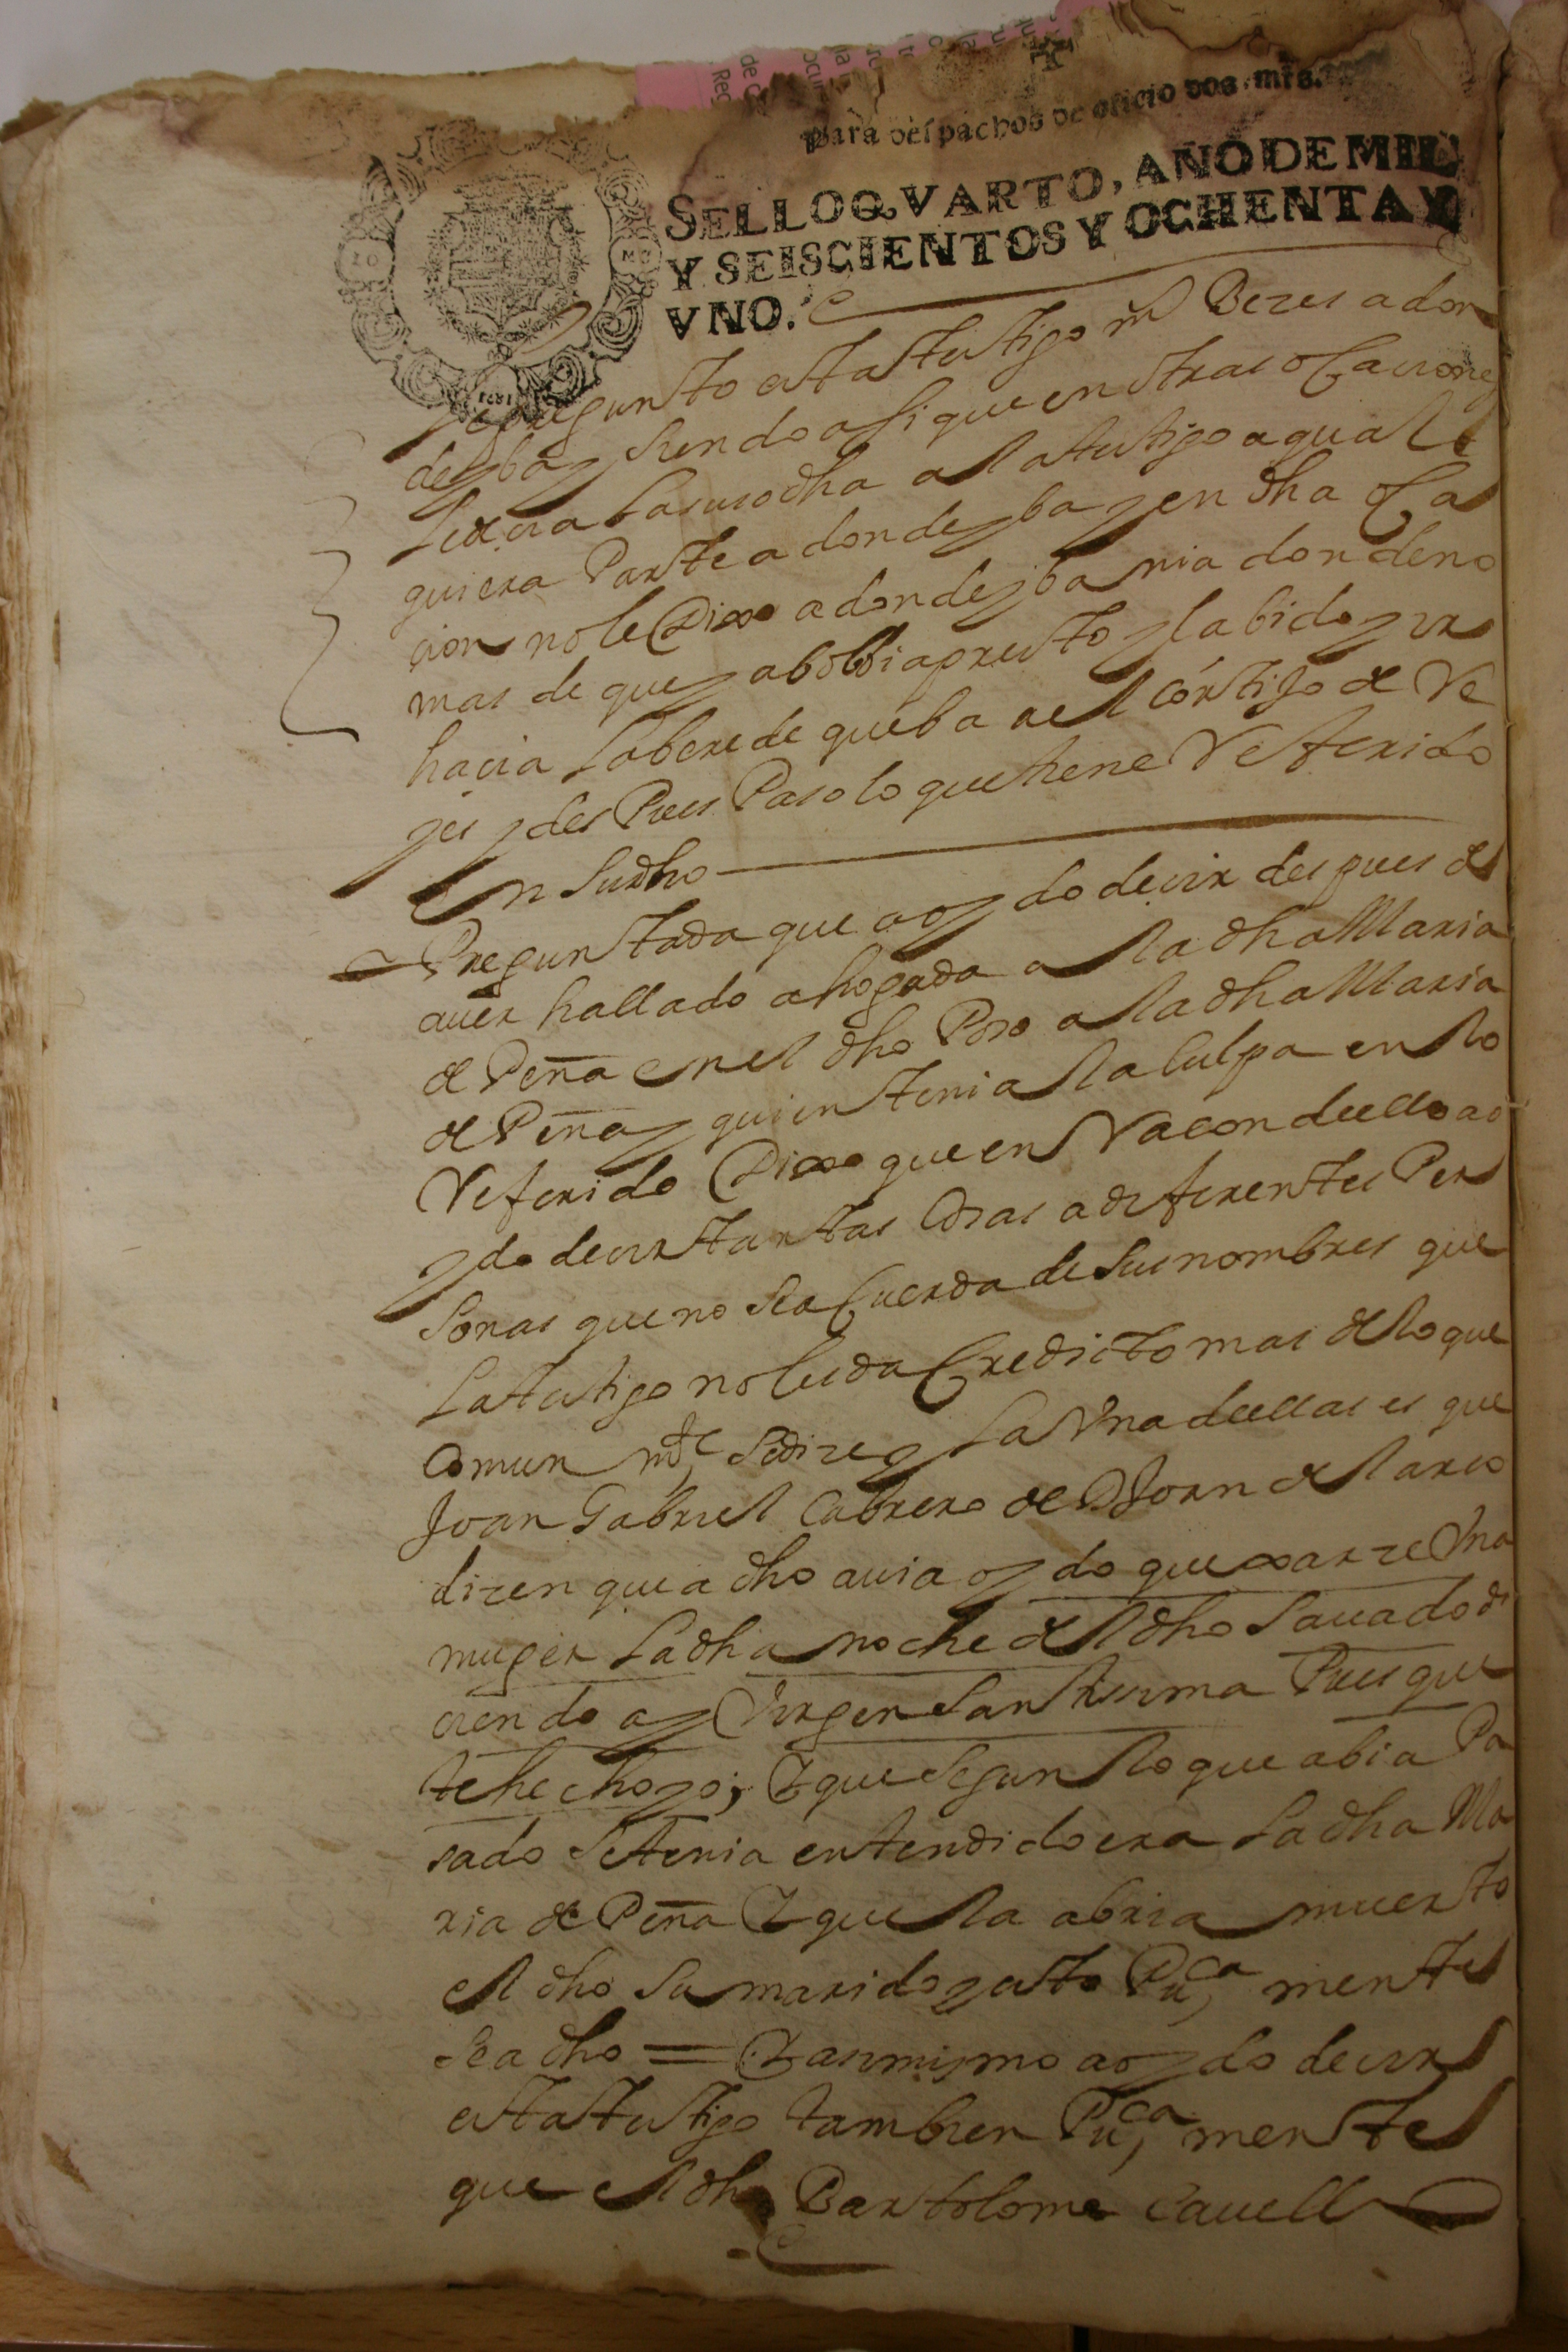 Para despachos de oficio dos mrs.
SELLO QVARTO, AÑO DE MIL
Y SEISCIENTOS Y OCHENTA Y
VNO.
1681
le pregunto esta testigo Beces adon
de yba y siendo asi que en otras ocaciones
le decia la susodha a la testigo a qual
quiera Parte a donde yba y en dha oca
cion no le Dixo a donde yba ni a donde no
mas de que ya bolbia presto y la bido yr
hacia la bereda que ba a el cortijo de Re
yes y des Pues Paso lo que tiene Referido
En su dho
Preguntada que a oydo decir despues de
auer hallado ahogada a la dha Maria
de Peña en el dho Poso a la dha Maria
de Peña y quien tenia la culpa en lo
Referido Dixo que en Racon de ello a o
ydo decir tantas cosas a diferentes Per
sonas que no se acuerda de sus nombres que
la testigo no les da credicto mas de lo que
comun mte se dize y la Vna de ellas es que
Joan Gabriel Cabrero de Dn Joan de Larco
dizen que a dho auia oydo quexarze Vna
muger la dha noche del dho sauado di
ciendo ay Virgen Santissima Pues que
te he echo yo; Y que segun lo que abia Pa
sado se tenia entendido era la dha Ma
ria de Peña Y que la abria muerto
el dho su marido y esto Puca mente
se a dho = Y asimismo a oydo decir
esta testigo tambien Puca mente
que el dho Bartolome Cauell